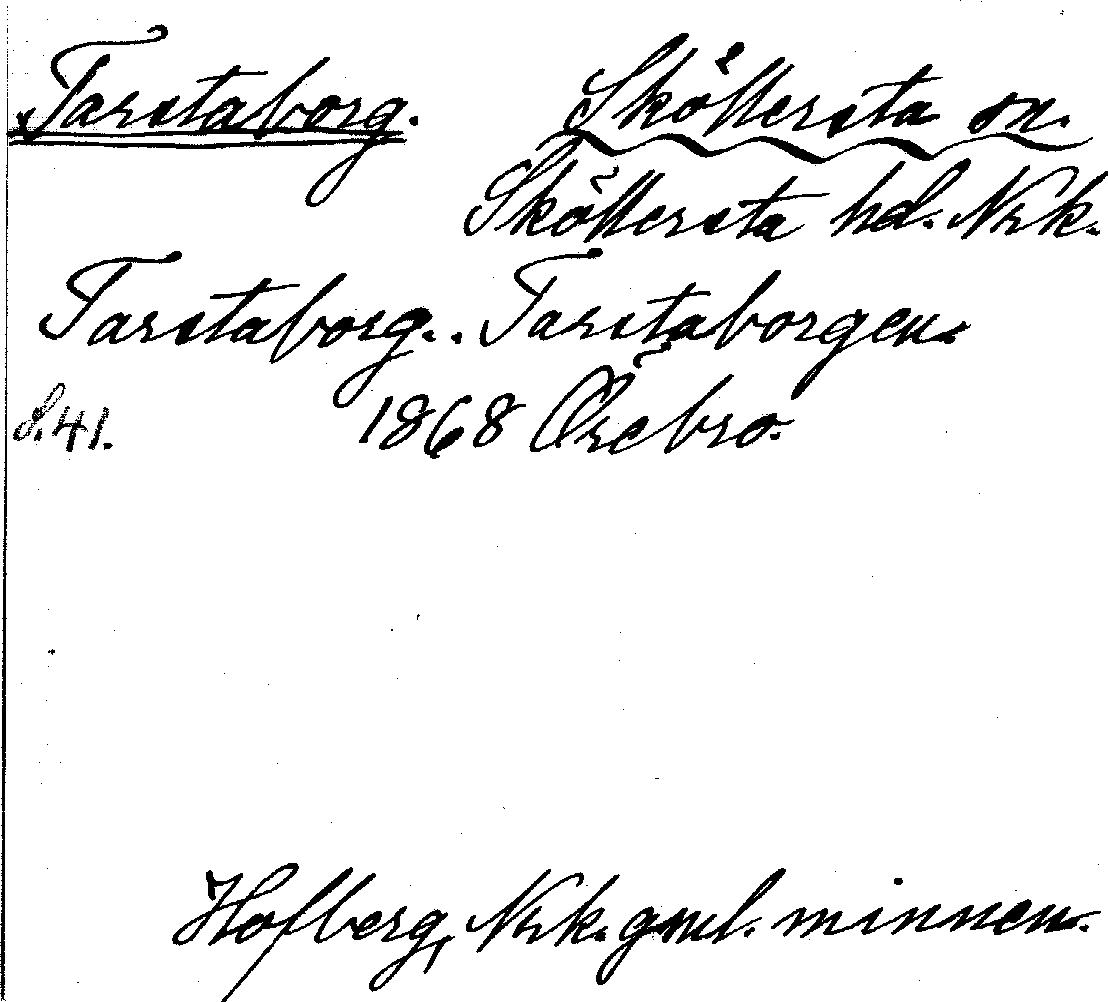 Tarstaborg. Sköllersta sn.
Sköllersta hd. Nrk.
Tarstaborg.. Tarstaborgen.
S. 41. 1868 Örebro.
Hofberg, Nrk. gml. minnen.